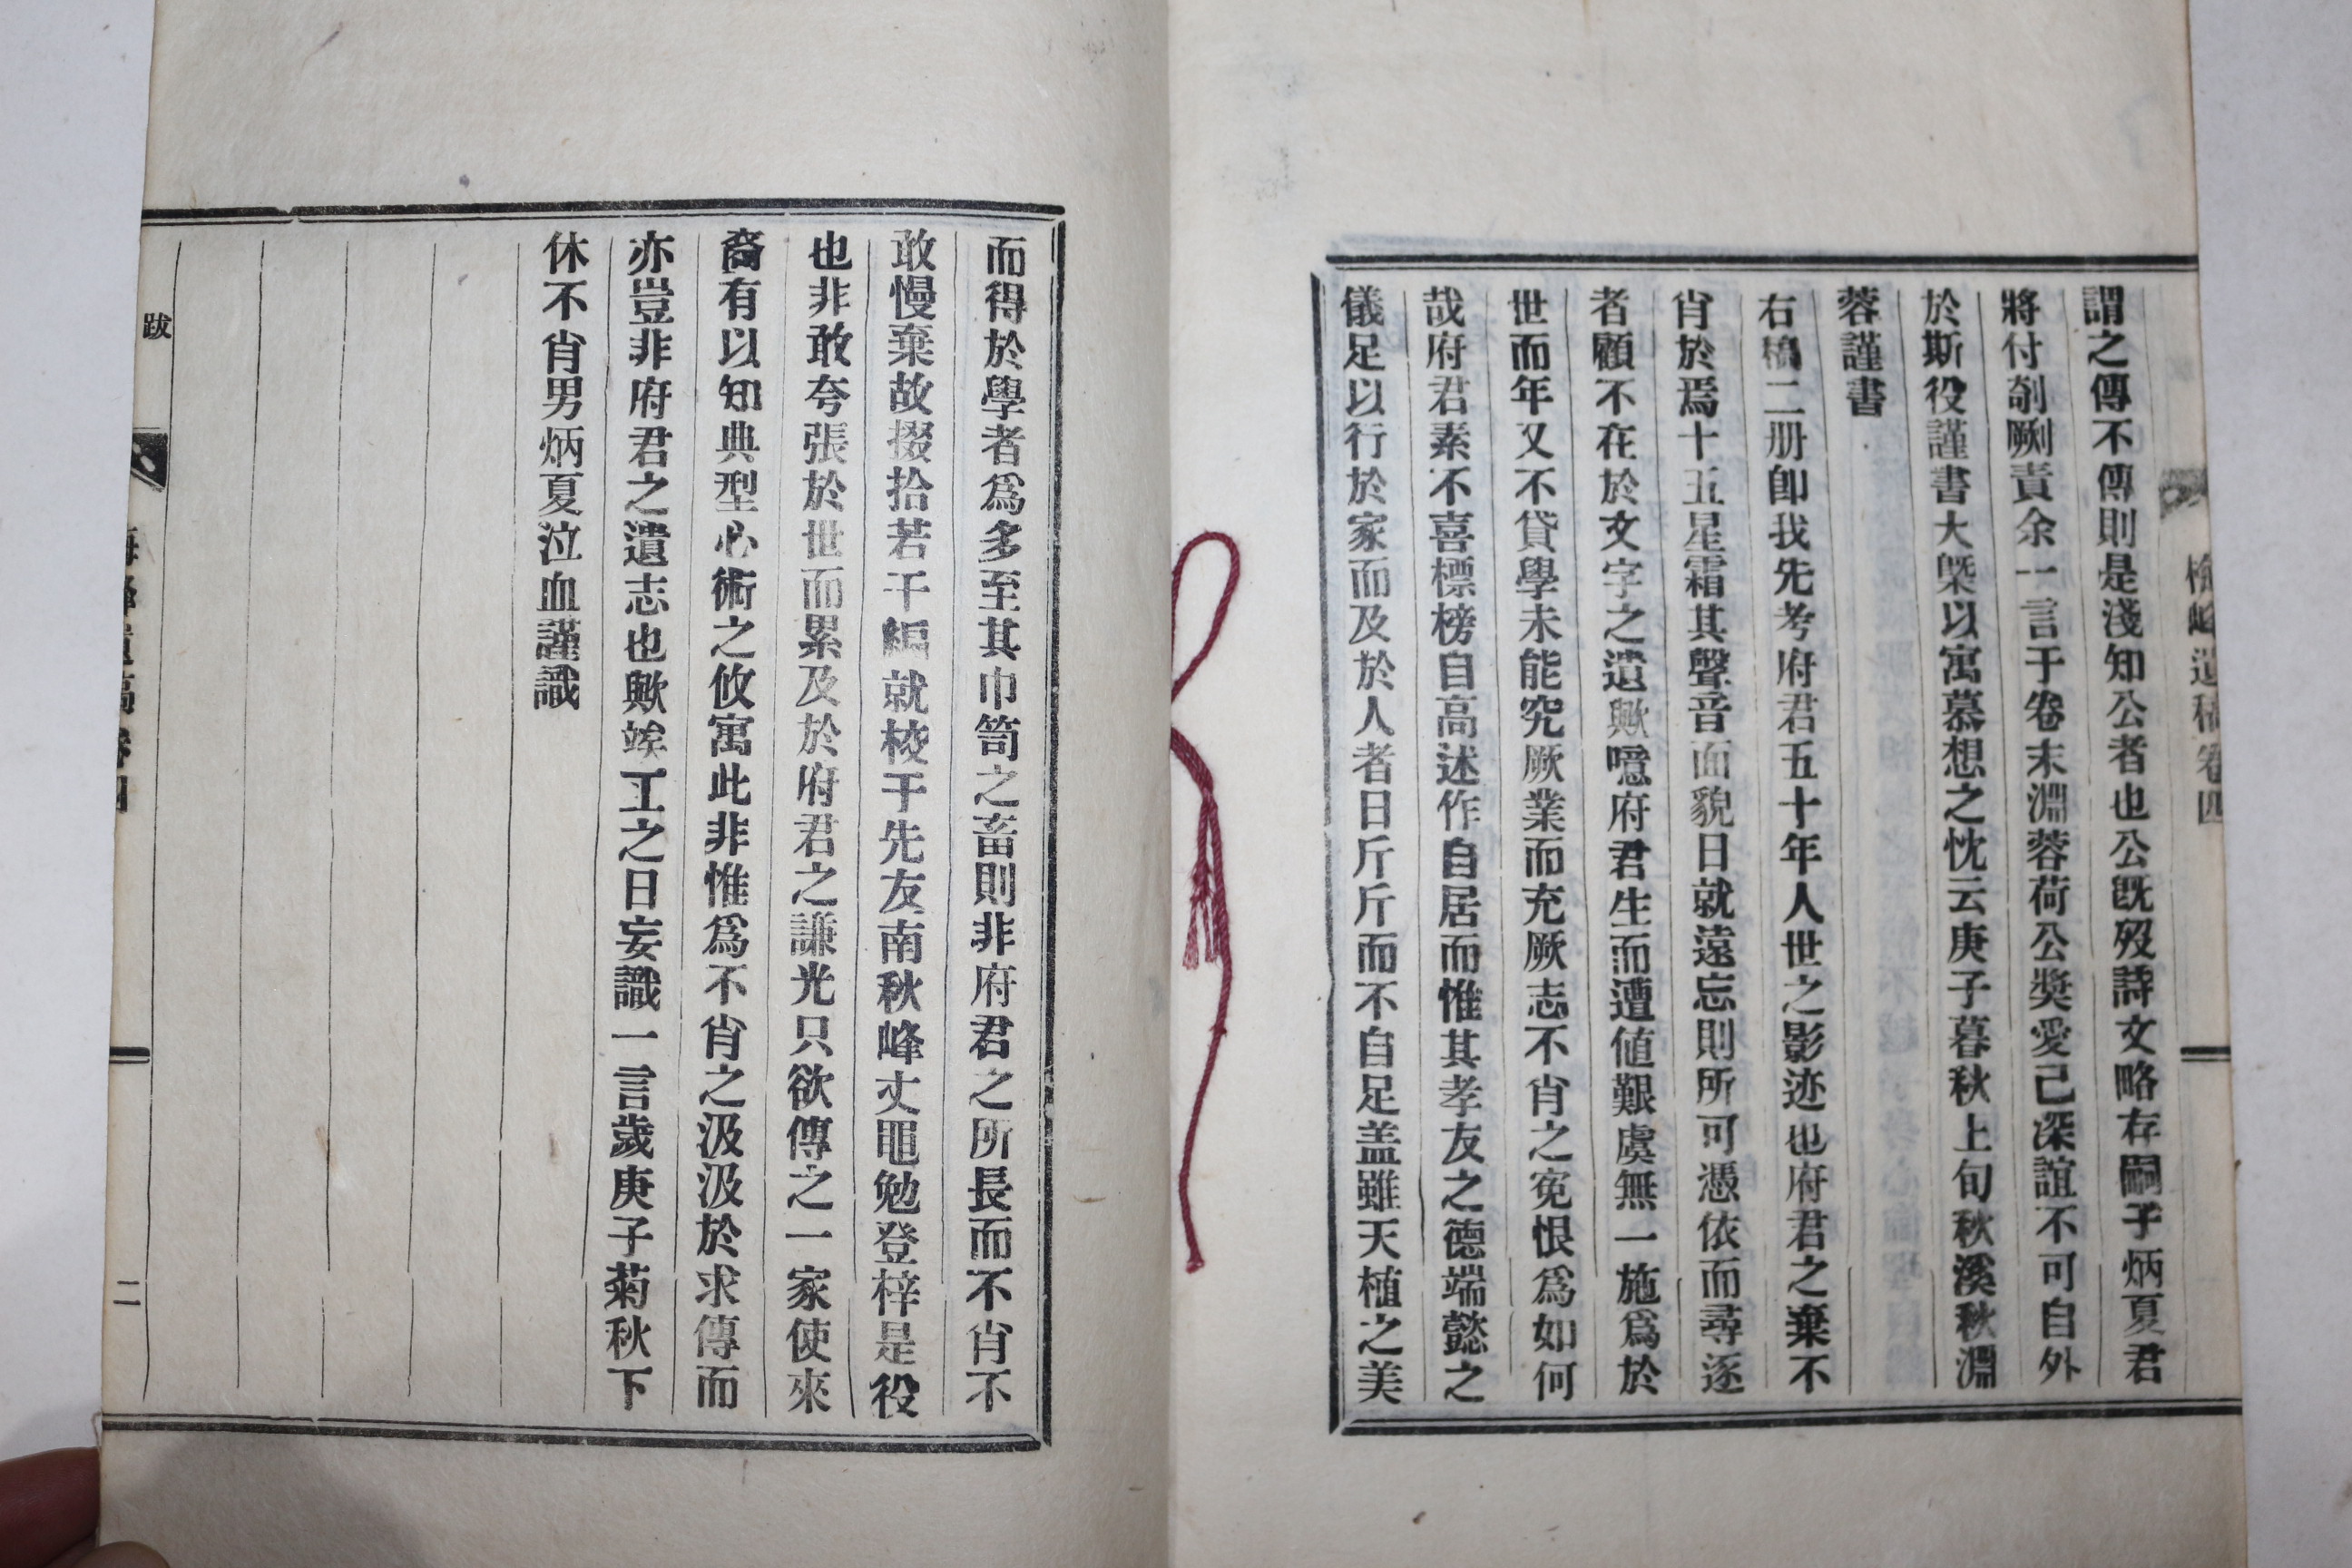 謂之傳不傳則是淺知公者也公旣歿詩文略存嗣子炳夏君
將付剞劂責余一言于卷末淵蓉荷公獎愛己深誼不可自外
於斯役謹書大槩以寓慕想之忱云庚子暮秋上旬秋溪秋淵
蓉謹書
右稿二册卽我先考府君五十年人世之影迹也府君之棄不
肖於焉十五星霜其聲音面貌日就遠忘則所可憑依而尋逐
者顧不在於文字之遺歟噫府君生而遭値艱虞無一施爲於
世而年又不貸學未能究厥業而充厥志不肖之寃恨爲如何
哉府君素不喜標榜自高述作自居而惟其孝友之德端懿之
儀足以行於家而及於人者日斤斤而不自足盖雖天植之美
而得於學者爲多至其巾笥之畜則非府君之所長而不肖不
敢慢棄故掇拾若干編就校于先友南秋峰丈黽勉登梓是役
也非敢夸張於世而累及於府君之謙光只欲傳之一家使來
裔有以知典型心術之攸寓此非惟爲不肖之汲汲於求傳而
亦豈非府君之遺志也歟竢工之日妄識一言歲庚子菊秋下
休不肖男炳夏泣血謹識
跋
峰遺稿卷四
二